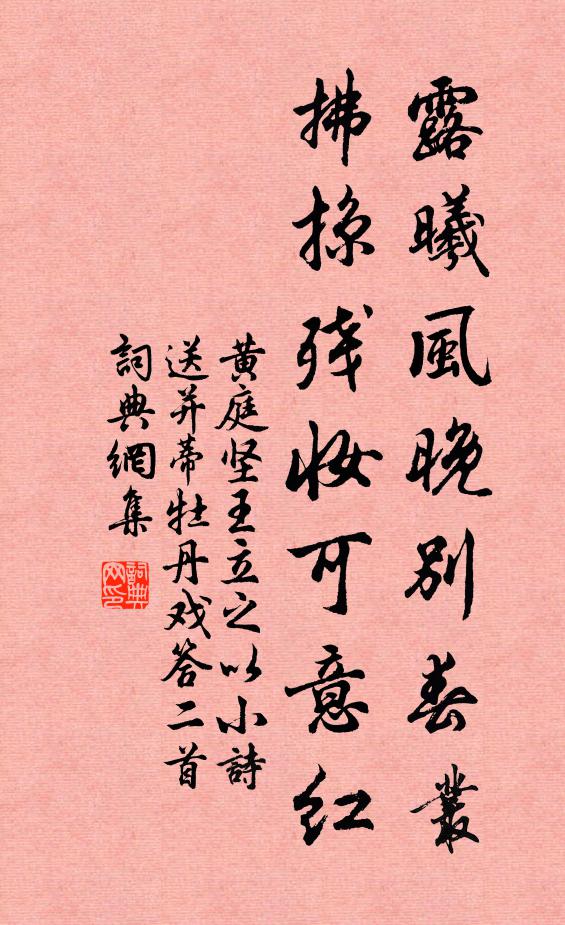 露曦風晚別春叢
拂掠残妝可意红
黄庭坚王立之以小詩
送并蒂牡丹戏答二首
詞典網集
詞典网印